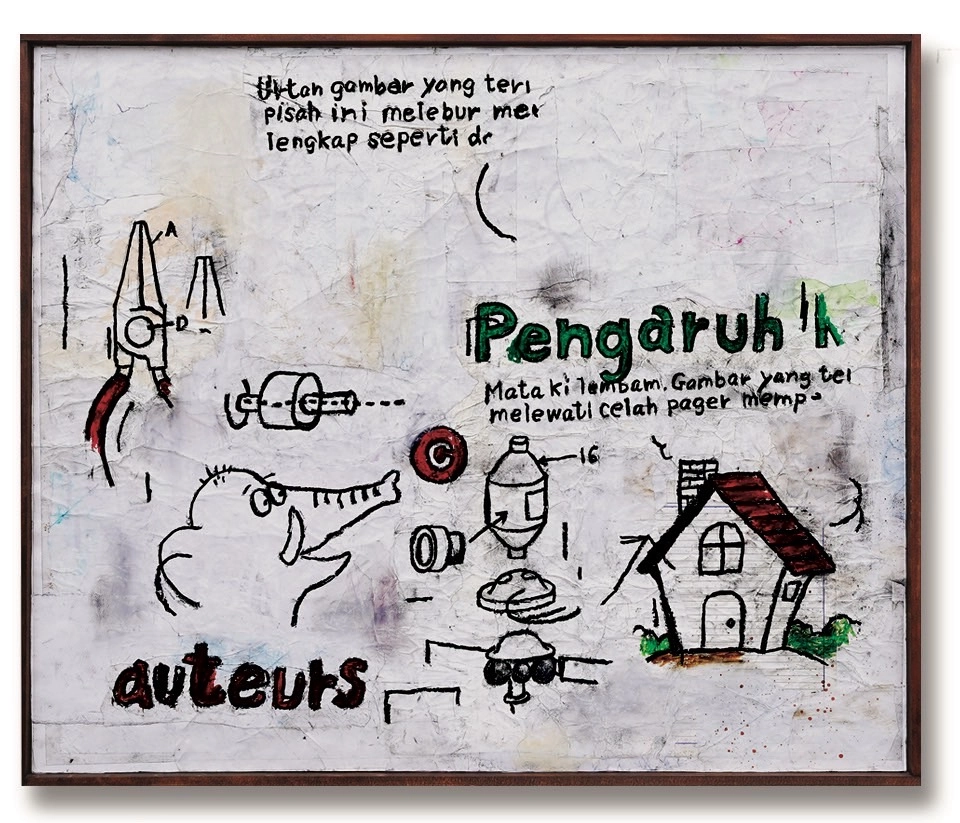 Urutan gambar yang teri
pisah ini melebur mer
lengkap seperti de
A
D
Pengaruh 'k
Mata ki lembam. Gambar yang tei
melewati celah pager memp-
C
16
auteurs